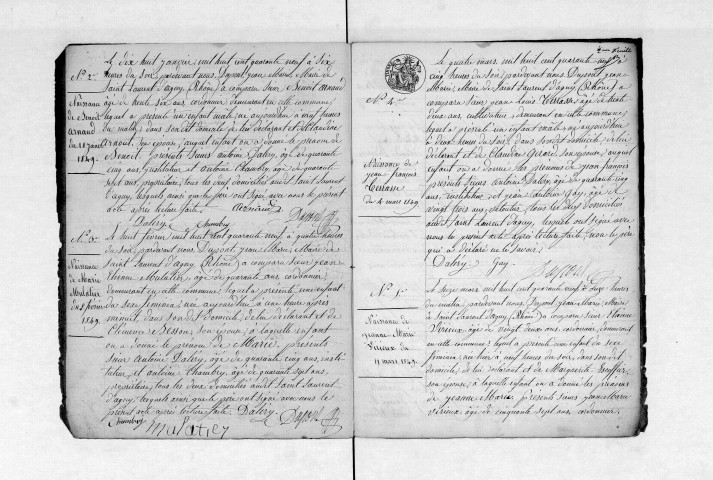 N.° 2.
Naissance
de Benoit
Arnaud
du 18 janvr
1849.
Le dix huit janvier, mil huit cent quarante neuf à six
heures du soir, pardevant nous, Dupont, jean Marie, Maire de
Saint Laurent d'agny, (Rhône) a comparu Sieur Benoit Arnaud
âgé de trente six ans, cordonnier demeurant en cette commune,
lequel a présenté un enfant mâle, né aujourd'hui à neuf heures
du matin, dans son dit domicile, de lui déclarant et de Claudine
son épouse, auquel enfant on a donné le prénom de
Benoit. Présents Sieurs Antoine Daléry, âgé de quarante
cinq ans, instituteur et Antoine Chambry, âgé de quarante
sept ans, propriétaire, tous les deux domiciliés audit Saint Laurent
d'agny, lesquels ainsi que le père ont signé avec nous le présent
acte après lecture faite.
Daléry Chambry Dupont
N.° 3.
Naissance
de Marie
Malatier
du 8 février
1849.
à huit février, mil huit cent quarante neuf à quatre heures
du soir, pardevant nous, Dupont, jean Marie, Maire de
Saint Laurent d'agny (Rhône) a comparu Sieur jean
Etienne Malatier, âgé de quarante ans, cordonnier,
demeurant en cette commune, lequel a présenté une enfant
du sexe féminin, née aujourd'hui à une heure après
minuit, dans son dit domicile, de lui déclarant et de
Clémence Besson, son épouse, à laquelle enfant
on a donné le prénom de Marie. présents
Sieur Antoine Daléry, âgé de quarante cinq ans, insti
tuteur, et Antoine Chambry, âgé de quarante sept ans,
propriétaire, tous les deux domiciliés audit Saint Laurent
d'agny, lesquels ainsi que le père ont signé avec nous le
présent acte après lecture faite. Daléry Dupont
Chambry
malatier
2me feuille
N.° 4.
Naissance de
jean françois
Terrasse
du 4 mars 1849
Le quatre mars, mil huit cent quarante neuf à
cinq heures du soir, pardevant nous Dupont, jean
Marie, Maire de Saint Laurent d'agny (Rhône) a
comparu Sieur jean Louis Terrasse, âgé de trente
deux ans, cultivateur, demeurant en cette commune,
lequel a présenté un enfant mâle, né aujourd'hui
à deux heures du soir dans son dit domicile, de lui
déclarant et de Claudine Gérard, son épouse, auquel
enfant on a donné les prénoms de jean françois
présents Sieurs Antoine Daléry, âgé de quarante cinq
ans, instituteur, et jean Gay, âgé de
vingt trois ans, tous les deux domiciliés
audit Saint Laurent d'agny, lesquels ont signé avec
nous le présent acte après lecture faite, non le père
qui a déclaré ne le savoir.
Daléry Gay
Dupont
N.° 5.
Naissance de
jeanne Marie
Vérieux du
11 mars 1849.
mars, mil huit cent quarante neuf à sept heures
du matin, pardevant nous, Dupont, jean Marie, Maire
de Saint Laurent d'agny, (Rhône) a comparu Sieur Etienne
Vérieux, âgé de vingt deux ans, cordonnier, demeurant
en cette commune, lequel a présenté une enfant du sexe
féminin, née à neuf heures du soir, dans son dit
domicile, de lui déclarant et de Marguerite
son épouse, à laquelle enfant on a donné les prénoms
de jeanne Marie. présents Sieurs jean Marie
Vérieux, âgé de cinquante sept ans, cordonnier,